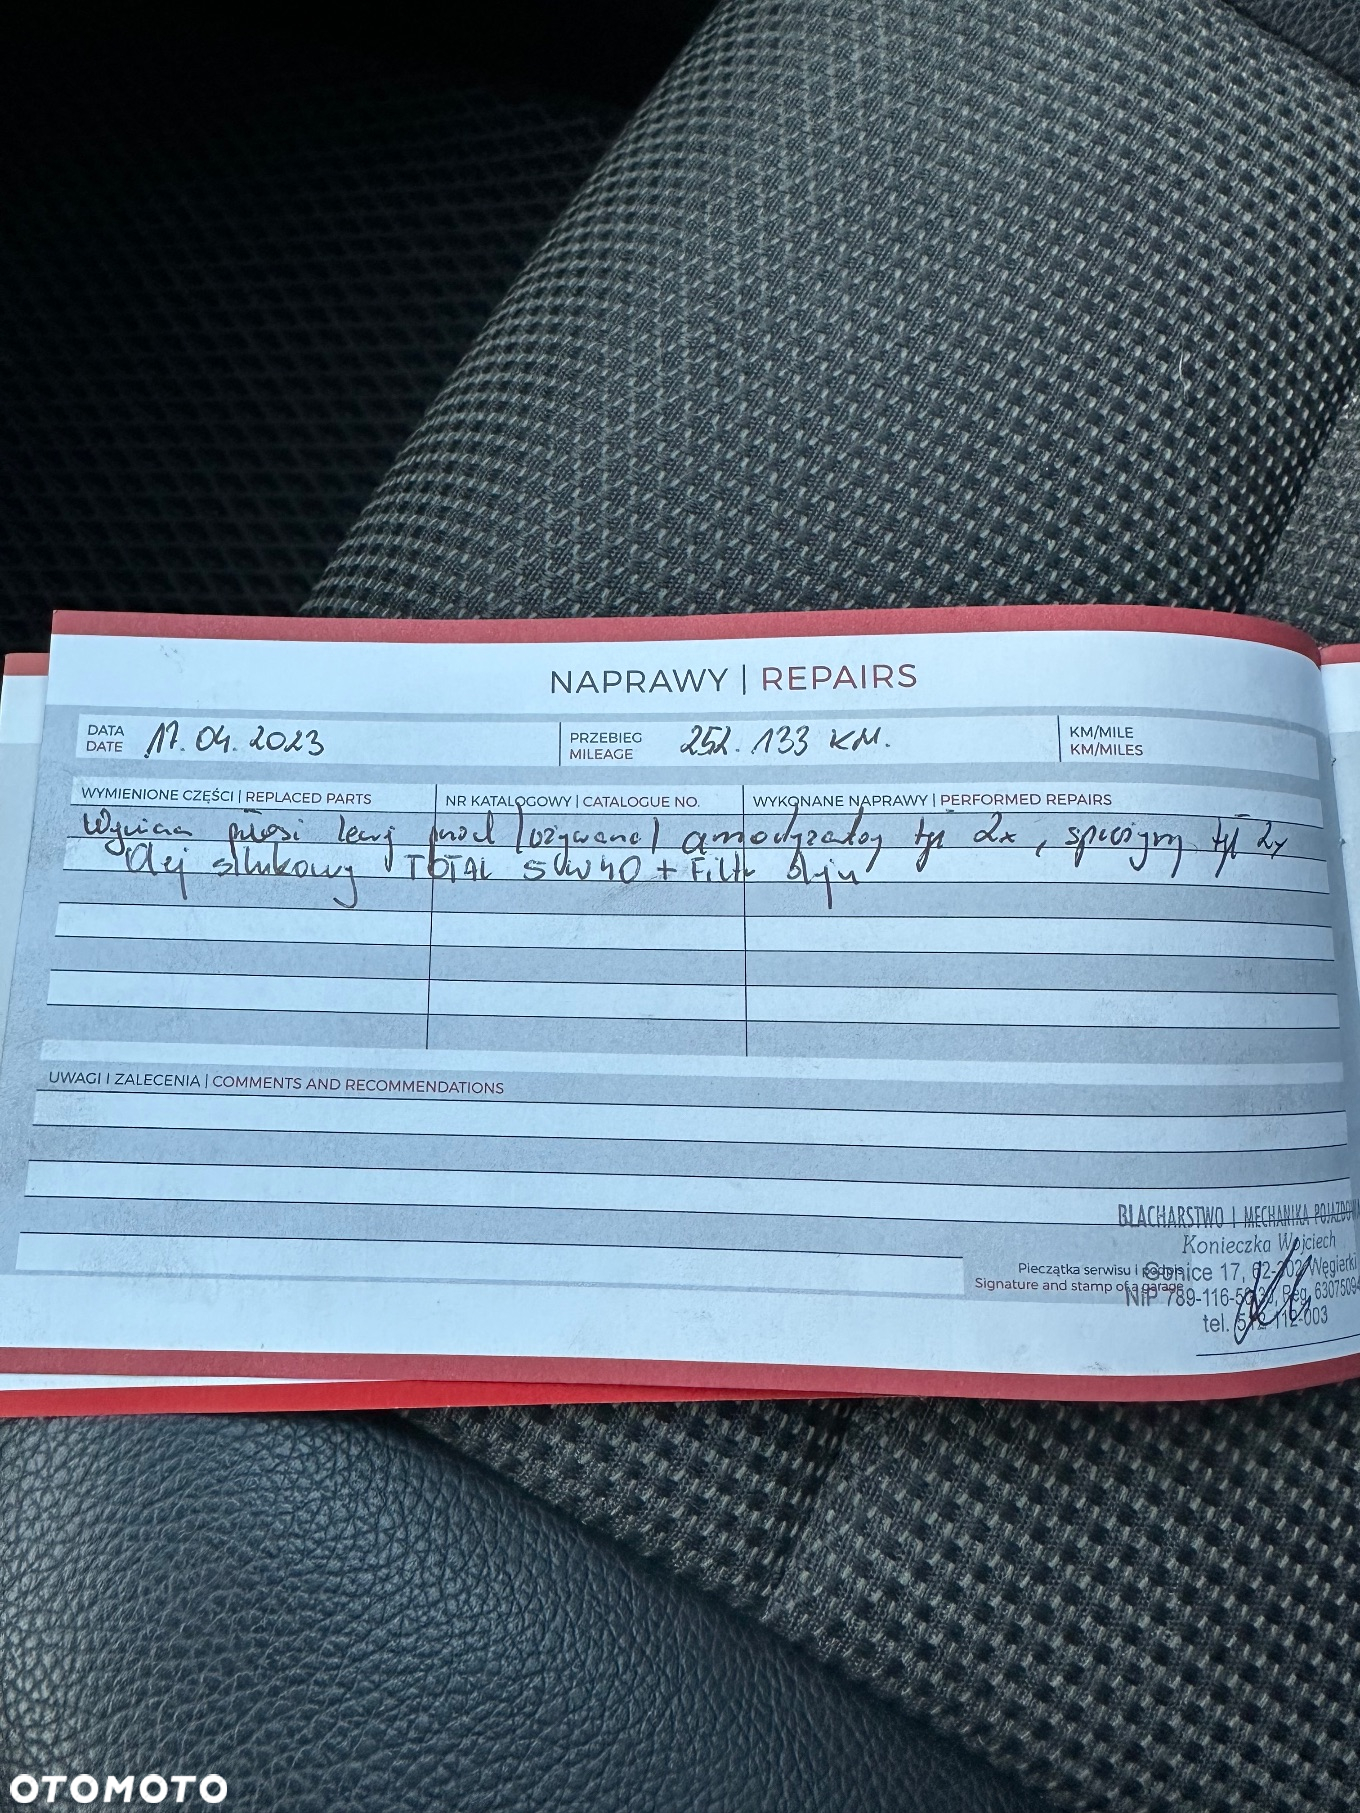 NAPRAWY | REPAIRS
DATA 17.04.2023 PRZEBIEG 252.133 KM. KM/MILE
DATE MILEAGE KM/MILES
WYMIENIONE CZĘŚCI | REPLACED PARTS NR KATALOGOWY | CATALOGUE NO. WYKONANE NAPRAWY | PERFORMED REPAIRS
lewy przód (używana) amortyzatory tył 2x, sprężyny tył 2x
Olej silnikowy TOTAL 5W40 + Filtr oleju
UWAGI I ZALECENIA | COMMENTS AND RECOMMENDATIONS
BLACHARSTWO I MECHANIKA POJAZDOWA
Konieczka Wojciech
Pieczątka serwisu i podpis
Signature and stamp of a garage
17, 62-302 Węgierki
NIP 789-116-
tel. 112-003
OTOMOTO